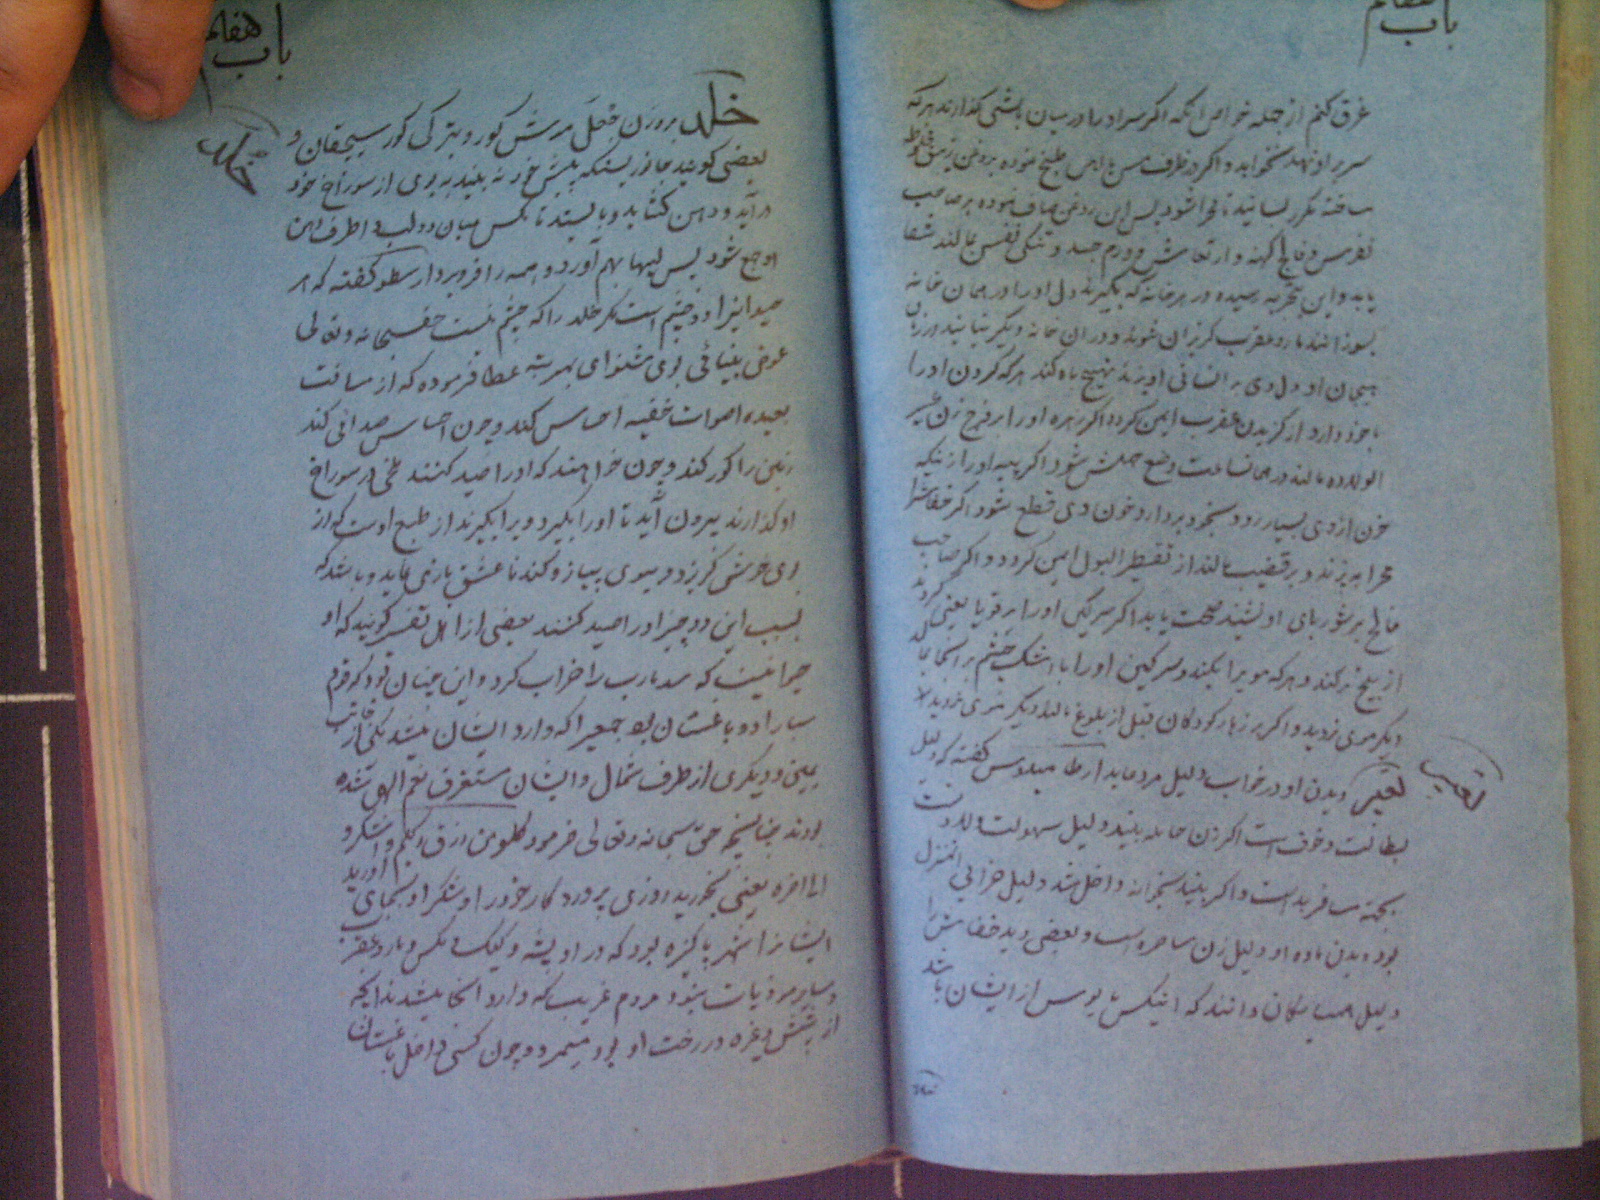 باب هفتم
غرق کنم از جمله خواص آنکه اگر سر او را در میان بالشی گذارند هر که
سر بر او نهد نخوابد و اگر در ظرف مس یا آهن طبخ نموده بروغن زنبق
ساخته مکرر بسانید تا مهرا شود پس این روغن صاف نموده بر صاحب
نقرس و فالج کهنه و ارتعاش و ورم جسد و تنگی نفس مالند شفا
یابد و این بتجربه رسیده در هر خانه که بگیرند دل او را در همان خانه
بسوزانند مار و عقرب گریزان شوند و در آن خانه دیگر نیایند
هیجان او دل وی بر انسانی آویزند تهییج باه کند هر که گردن او را
با خود دارد از گزیدن عقرب ایمن گردد اگر زهره او را بر فرج زن عسیر
الولاده مالند در همان ساعت وضع حملش شود اگر پیه او را زنیکه
خون از وی بسیار رود بخود بردارد خون وی قطع شود اگر خفاش را
مهرا بپزند و بر قضیب مالند از تقطیر البول ایمن گردد و اگر صاحب
فالج بر شوربای او نشیند صحت یابد اگر سرگین او را بر قوبا یعنی گرد
از بیخ برکند و هر که مو برا بکند و سرگین او را با اشک چشم بر آنجا مالد
دیگر موی نروید و اگر بر زهار کودکان قبل از بلوغ مالند دیگر موی نروید
تعبیر
تعبیر دیدن او در خواب دلیل مرد عابد ارطامیدوس گفته که دلیل
بطالت و خوف است اگر زن حامله بیند دلیل سهولت ولادت
بجهة مسافر بد است و اگر بیند بخانه داخل شد دلیل خرابی آنمنزل
بود و دیدن ماده او دلیل زن ساحره است و بعضی دید خفاش را
دلیل همسایگان دانند که اینکس مایوس از ایشان باشد
باب هفتم
خلد
خلد بر وزن جعل موش کور و بترکی کور سیچقان و
بعضی گویند جانوریستکه پیش خود نه بیند به بوی از سوراخ خود
در آید و دهن گشاید و بایستد تا مگس میان دو لب و اطراف دهن
او جمع شود پس لبها بهم آورد و همه را فرو برد ارسطو گفته که هر
حیوانیرا دو چشم است مگر خلد را که چشم نیست حقسبحانه و تعالی
عوض بینائی بوی شنوای بمرتبه عطا فرموده که از مسافت
بعیده اصوات خفیه احساس کند و چون احساس صدائی کند
زمین را گور کند و چون خواهند که او را صید کنند در سوراخ
او گذارند بیرون آید تا او را بگیرد ویرا بگیرند از طبع اوست که از
بوی خوش گریزد و ببوی پیاز و گند نا عشق بازی نماید و باشد که
بسبب این دو چیز او را صید کنند بعضی از اهل تفسیر گویند که او
حیوانیست که سد مارب را خراب کرد و این چنان بود که قوم
سبا را دو باغستان بود جمعیرا که وارد ایشان میشد یکی از جانب
یمین و دیگری از طرف شمال و ایشان مستغرق نعم الهی شده
بودند چنانچه حق سبحانه و تعالی فرمود کلو من رزق ربکم و اشکرو
الی آخره یعنی بخورید روزی پروردکار خود را و شکر او بجای آورید
ایشانرا شهر پاکیزه بود که در او پشه و کیک و مگس و مار و عقرب
و سایر موذیات نبود مردم غریب که وارد آنجا میشدند آنچه
از شپش و غیره در رخت او بود میمرد و چون کسی داخل باغستان